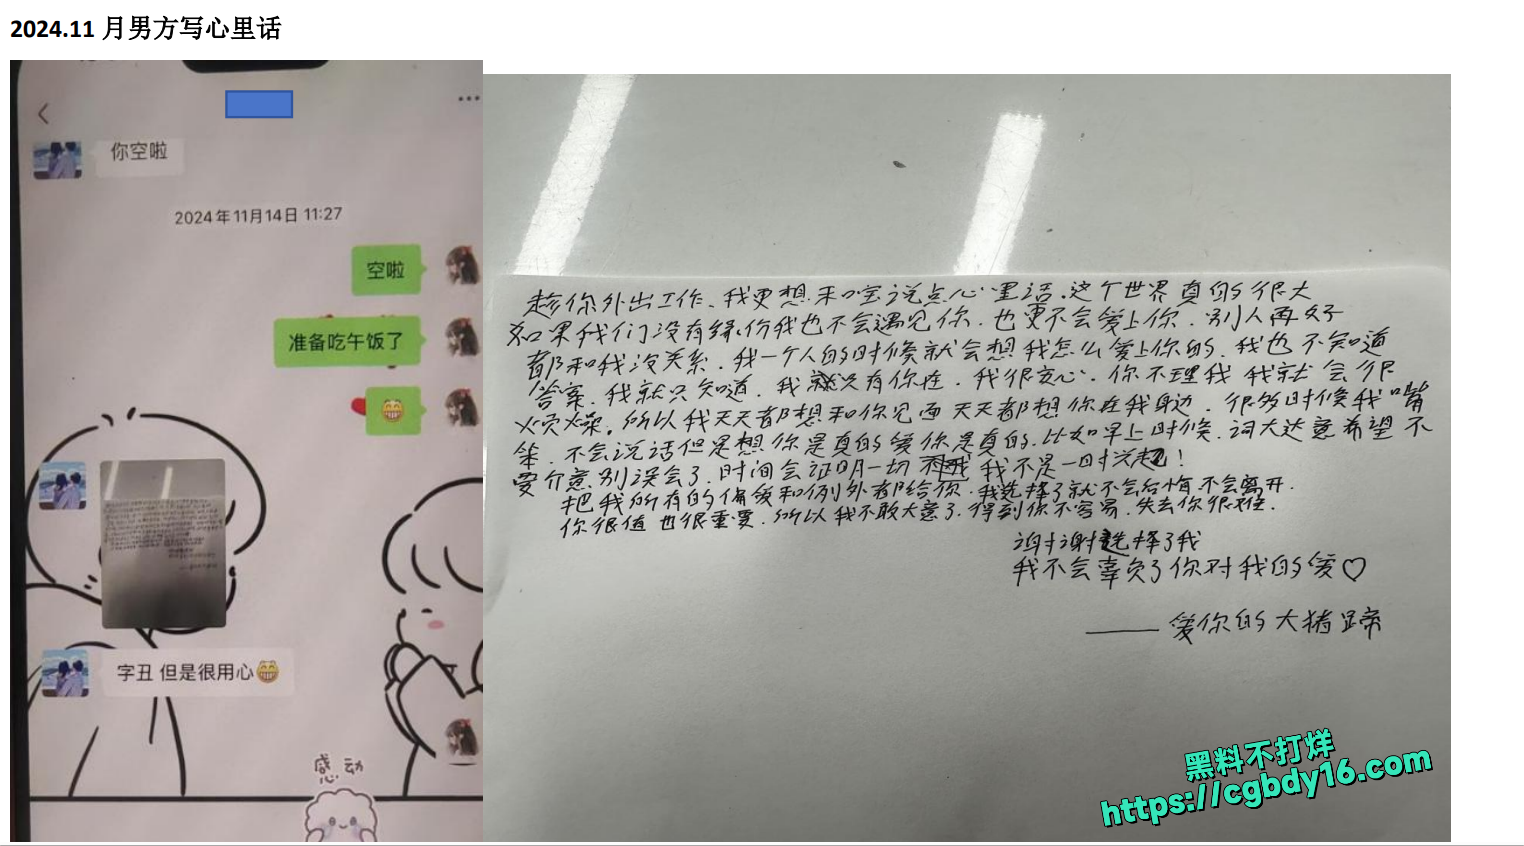 2024.11 月男方写心里话
你空啦
2024年11月14日 11:27
空啦
准备吃午饭了
字丑 但是很用心
感动
趁你外出工作、我更想和宝说点心里话.这个世界真的很大
如果我们没有缘份我也不会遇见你.也更不会爱上你.别人再好
都和我没关系.我一个人的时候就会想我怎么爱上你的.我也不知道
答案.我就只知道.我就只有你在.我很安心.你不理我 我就会很
烦燥。所以我天天都想和你见面 天天都想你在我身边.很多时候我嘴
笨.不会说话但是想你是真的爱你是真的.比如早上时候.词大达意希望不
要介意别误会了.时间会证明一切 我不是一时兴起!
把我所有的偏爱和例外都给你.我选择了就不会后悔不会离开.
你很值也很重要.所以我不敢大意了.得到你不容易.失去你很难.
谢谢选择了我
我不会辜负了你对我的爱♡
——爱你的大猪蹄
黑料不打烊
https://cgbdy16.com